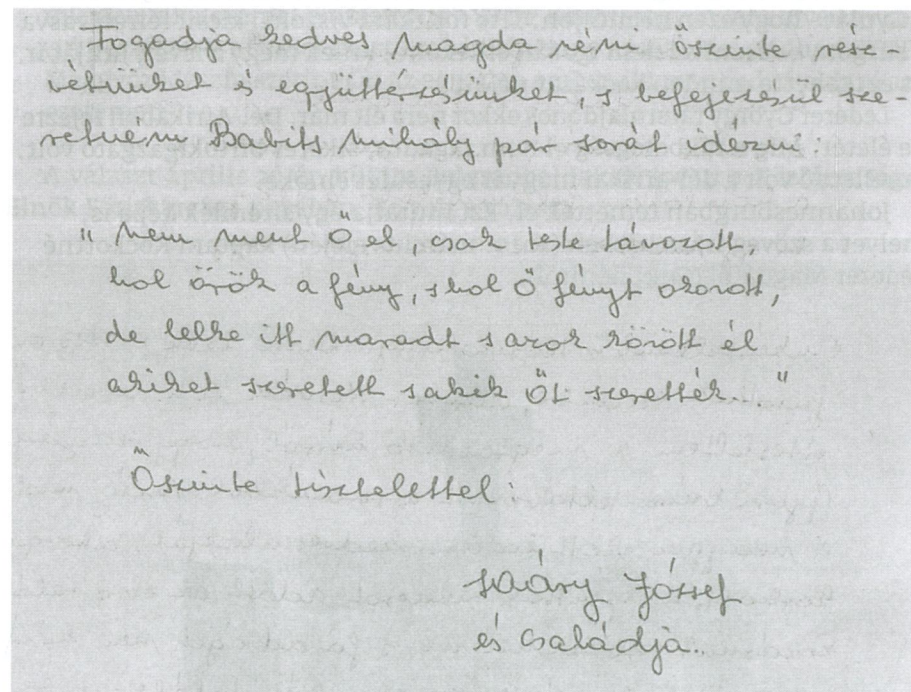 Fogadja kedves Magda néni őszinte rész-
vétünket és együttérzésünket, s befejezésül sze-
retném Babits Mihály pár sorát idézni.
" Nem ment Ő el, csak teste távozott,
hol örök a fény, s hol Ő fényt okozott,
de lelke itt maradt s azok között él
akiket szeretett s akik Őt szerették..."
Őszinte tisztelettel:
József
és családja.